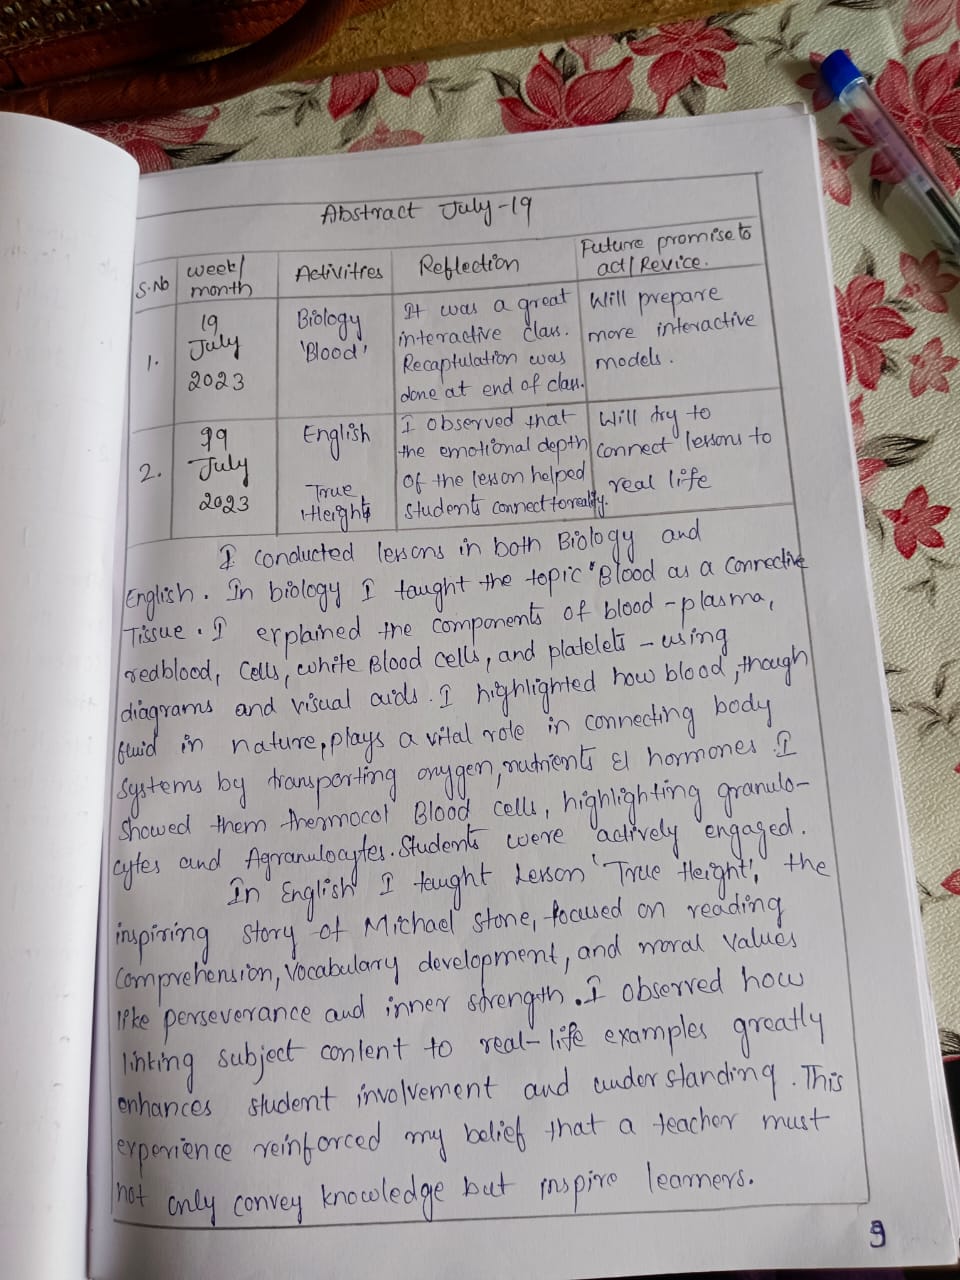 Abstract July-19
S.No
week/
month
Activities
Reflection
Future promise to
act/Revice.
1.
19
July
2023
Biology
'Blood'
It was a great
interactive class.
Recaptulation was
done at end of class.
Will prepare
more interactive
models.
2.
19
July
2023
English
True
Height
I observed that
the emotional depth
of the lesson helped
students connect to reality.
Will try to
connect lessons to
real life
I conducted lessons in both Biology and
English. In biology I taught the topic "Blood as a Connective
Tissue. I explained the components of blood-plasma,
redblood, Cells, white Blood cells, and platelets - using
diagrams and visual aids. I highlighted how blood, though
fluid in nature, plays a vital role in connecting body
systems by transporting oxygen, nutrients & hormones. I
showed them thermocol Blood cells, highlighting granulo-
cytes and Agranulocytes. Students were actively engaged.
In English I taught Lesson 'True Height', the
inspiring story of Michael Stone, focused on reading
comprehension, vocabulary development, and moral values
like perseverance and inner strength. I observed how
linking subject content to real-life examples greatly
enhances student involvement and understanding. This
experience reinforced my belief that a teacher must
not only convey knowledge but inspire learners.
9